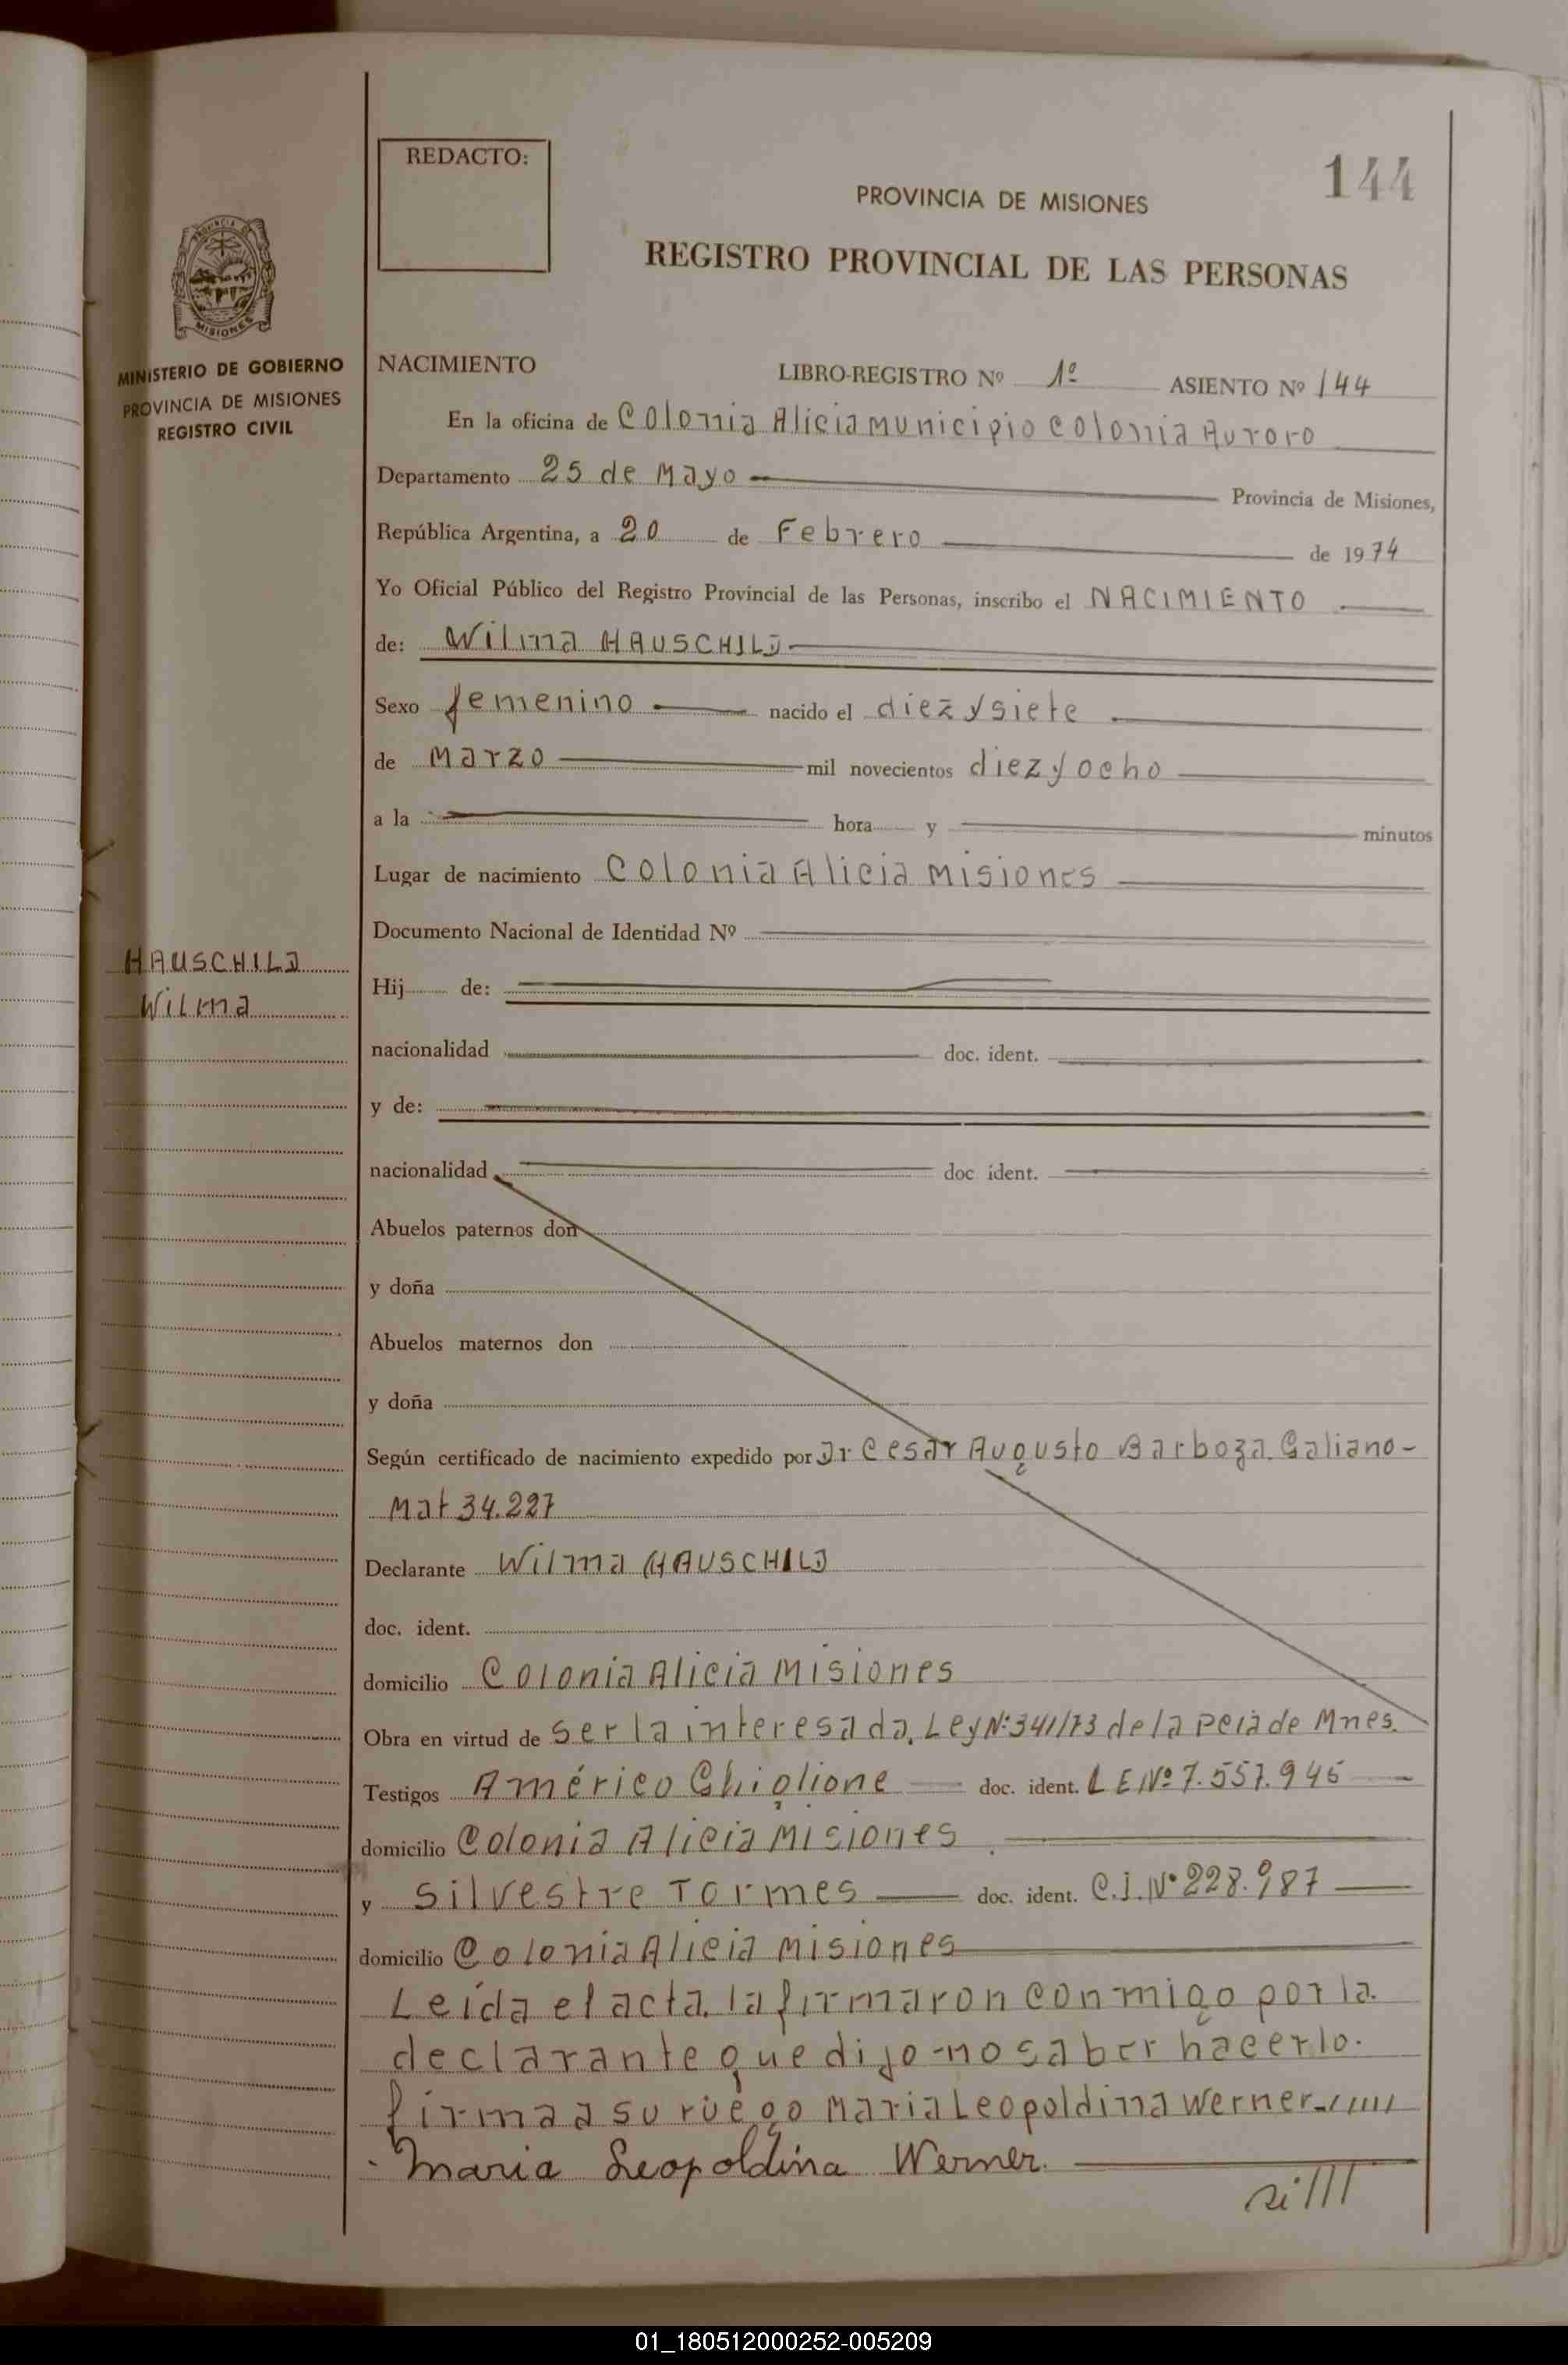 REDACTO:
144
PROVINCIA DE MISIONES
REGISTRO PROVINCIAL DE LAS PERSONAS
PROVINCIA DE
MISIONES
MINISTERIO DE GOBIERNO
PROVINCIA DE MISIONES
REGISTRO CIVIL
NACIMIENTO LIBRO-REGISTRO Nº 1º ASIENTO Nº 144
En la oficina de Colonia Alicia Municipio Colonia Auroro
Departamento 25 de Mayo Provincia de Misiones,
República Argentina, a 20 de Febrero de 1974
Yo Oficial Público del Registro Provincial de las Personas, inscribo el NACIMIENTO
de: Wilma HAUSCHILD
Sexo femenino nacido el diez y siete
de Marzo mil novecientos diez y ocho
a la hora y minutos
Lugar de nacimiento Colonia Alicia Misiones
Documento Nacional de Identidad Nº
HAUSCHILD
Wilma
Hij de:
nacionalidad doc. ident.
y de:
nacionalidad doc ident.
Abuelos paternos don
y doña
Abuelos maternos don
y doña
Según certificado de nacimiento expedido por Dr Cesar Augusto Barboza Galiano-
Mat 34.227
Declarante Wilma HAUSCHILD
doc. ident.
domicilio Colonia Alicia Misiones
Obra en virtud de ser la interesada, Ley Nº 341/73 de la Pcia de Mnes.
Testigos Américo Ghiglione doc. ident. L E Nº 7.557.946
domicilio Colonia Alicia Misiones
y Silvestre Tormes doc. ident. C.I. Nº 228.987
domicilio Colonia Alicia Misiones
Leída el acta, la firmaron conmigo por la
declarante que dijo no saber hacerlo.
firma a su ruego Maria Leopoldina Werner-/////
Maria Leopoldina Werner.
si///
01_180512000252-005209